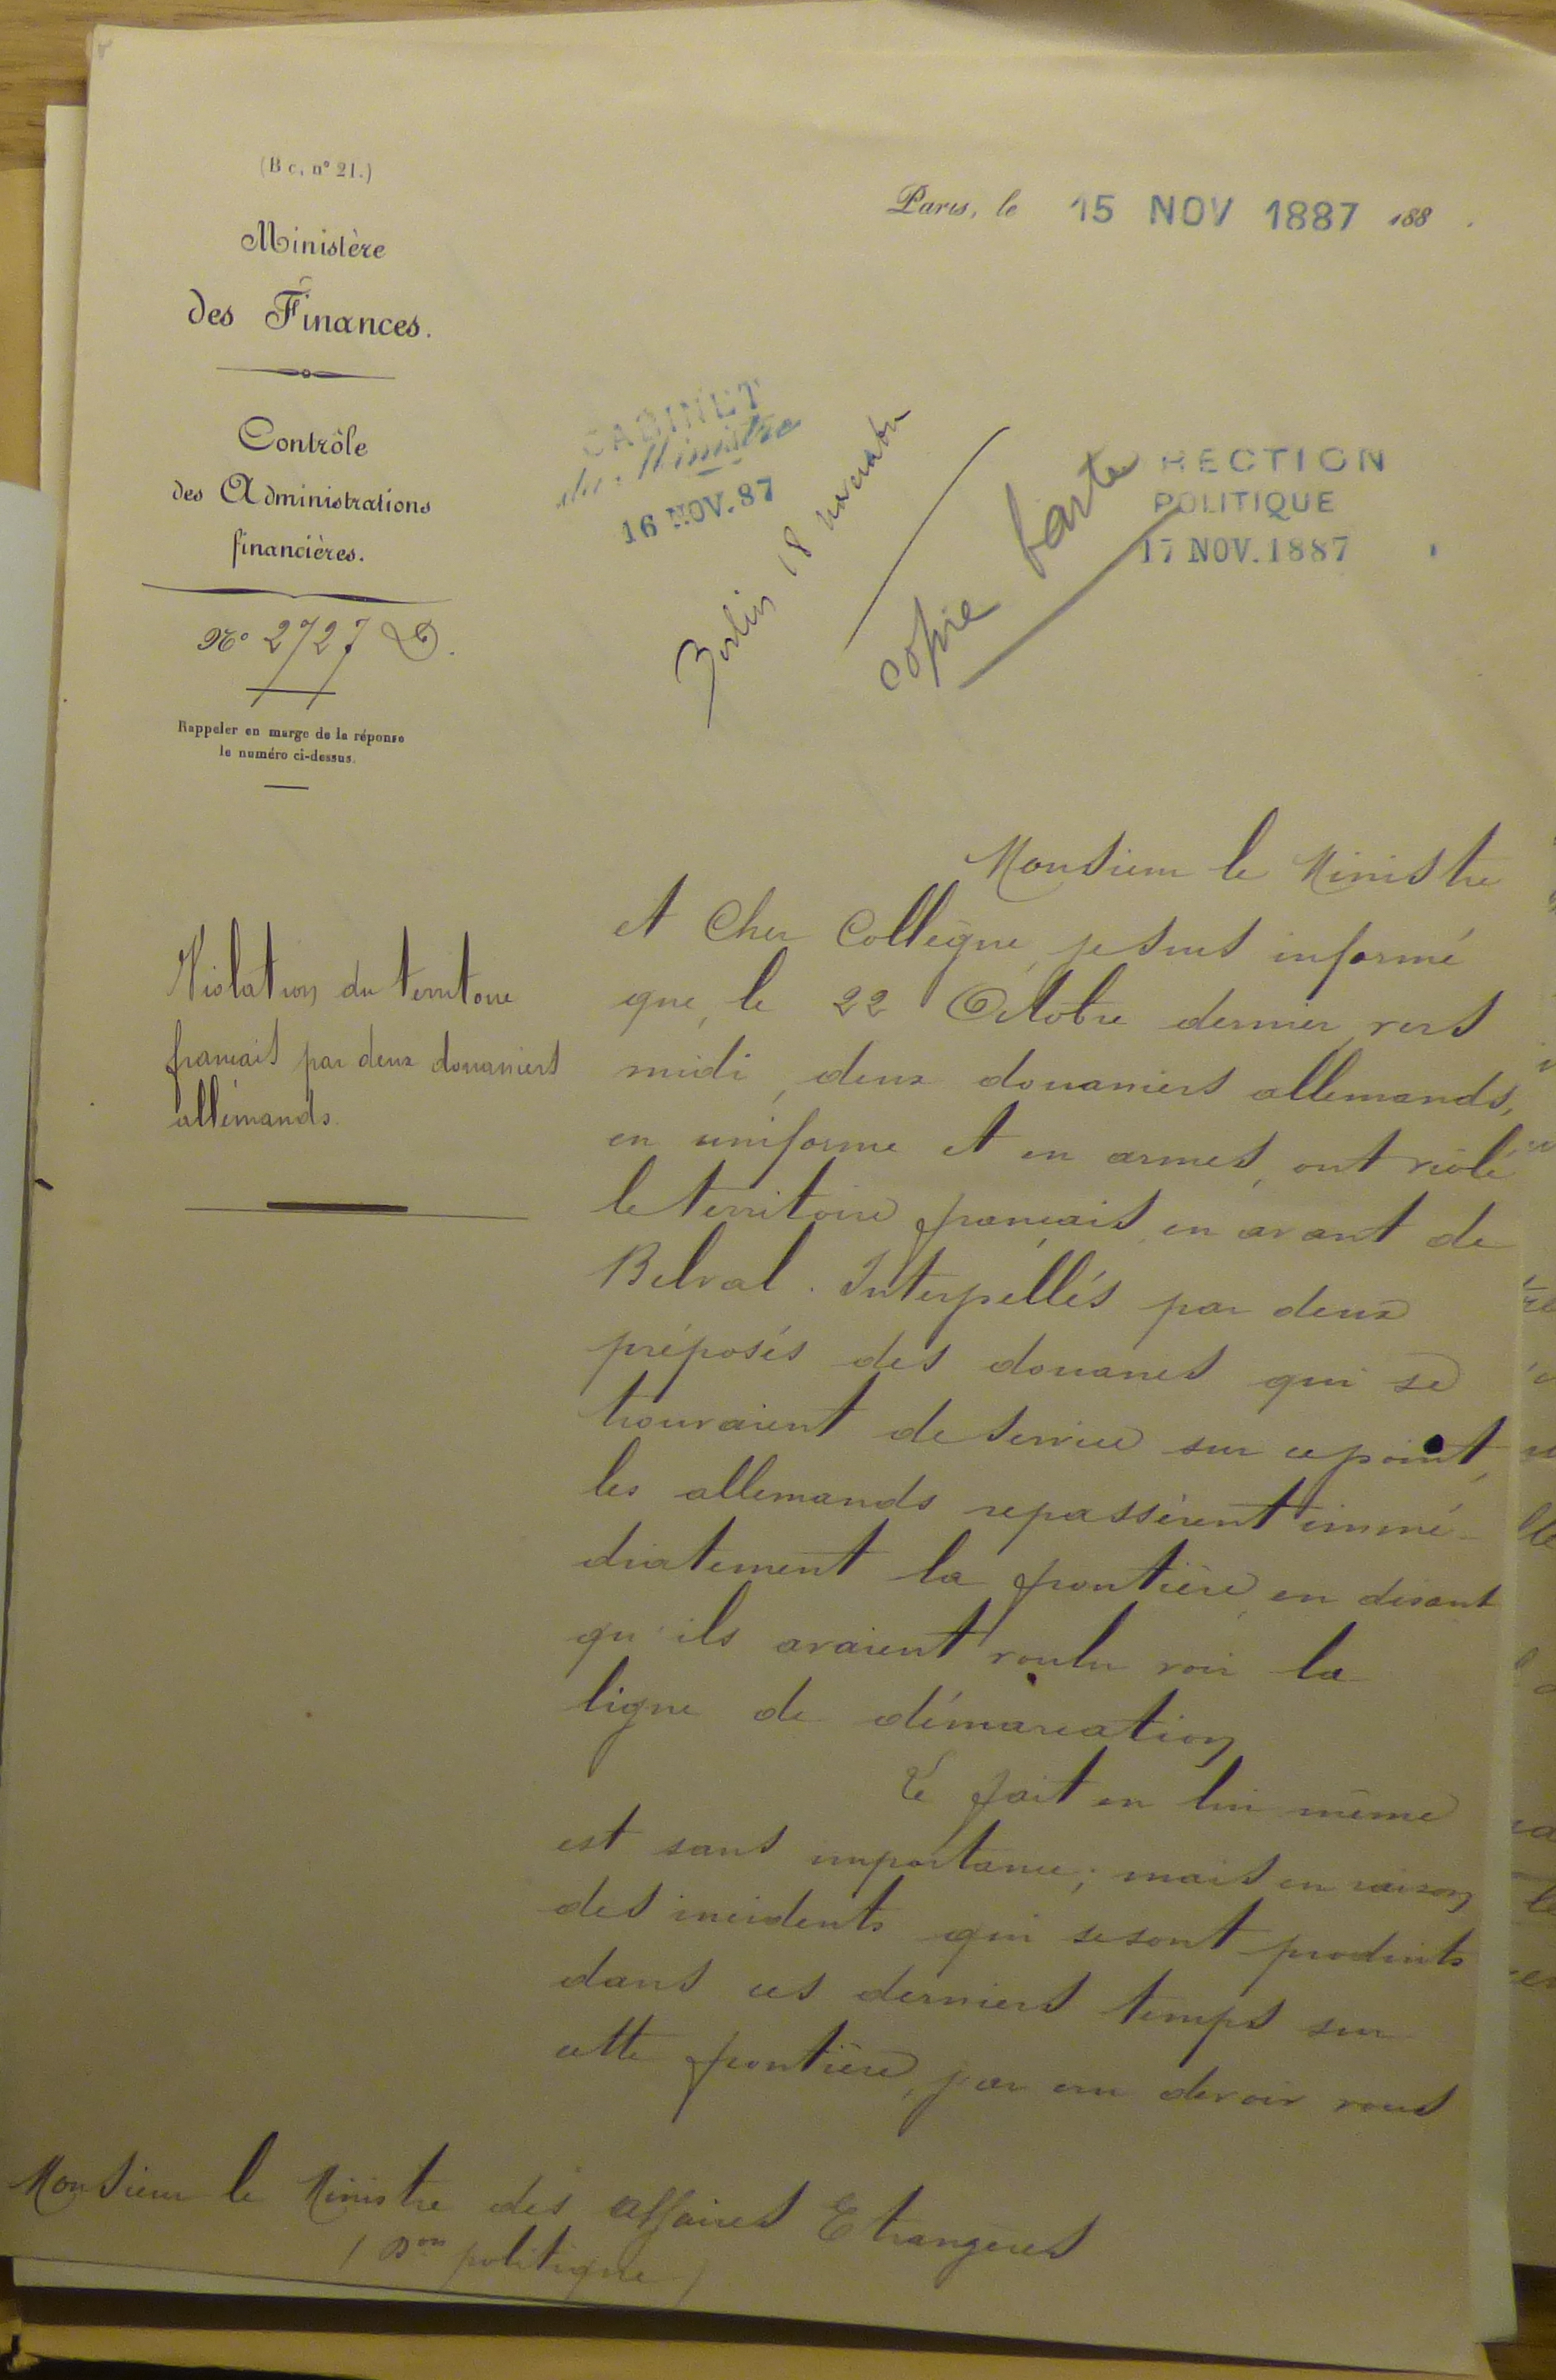 (B c, n° 21.)
Ministère
des Finances.
Contrôle
des Administrations
financières.
N° 2727 D.
Rappeler en marge de la réponse
le numéro ci-dessus.
Paris, le 15 NOV 1887 188 .
CABINET
du Ministre
16 NOV. 87
Berlin 18 novembre
copie faite
RECTION
POLITIQUE
17 NOV. 1887
Violation du territoire
français par deux douaniers
allemands.
Monsieur le Ministre
et Cher Collègue, je suis informé
que, le 22 Octobre dernier, vers
midi, deux douaniers allemands,
en uniforme et en armes, ont violé
le territoire français, en avant de
Belval. Interpellés par deux
préposés des douanes qui se
trouvaient de service sur ce point,
les allemands repassèrent immé-
diatement la frontière, en disant
qu'ils avaient voulu voir la
ligne de démarcation
Le fait en lui même
est sans importance; mais en raison
des incidents qui se sont produits
dans ces derniers temps sur
cette frontière, j'ai cru devoir vous
Monsieur le Ministre des affaires Etrangères
(Don politique)